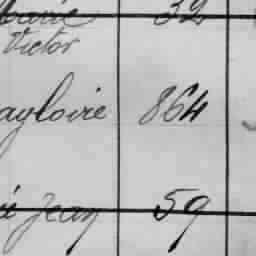 Marie 32
Victor
ayloire 864
Jean 59